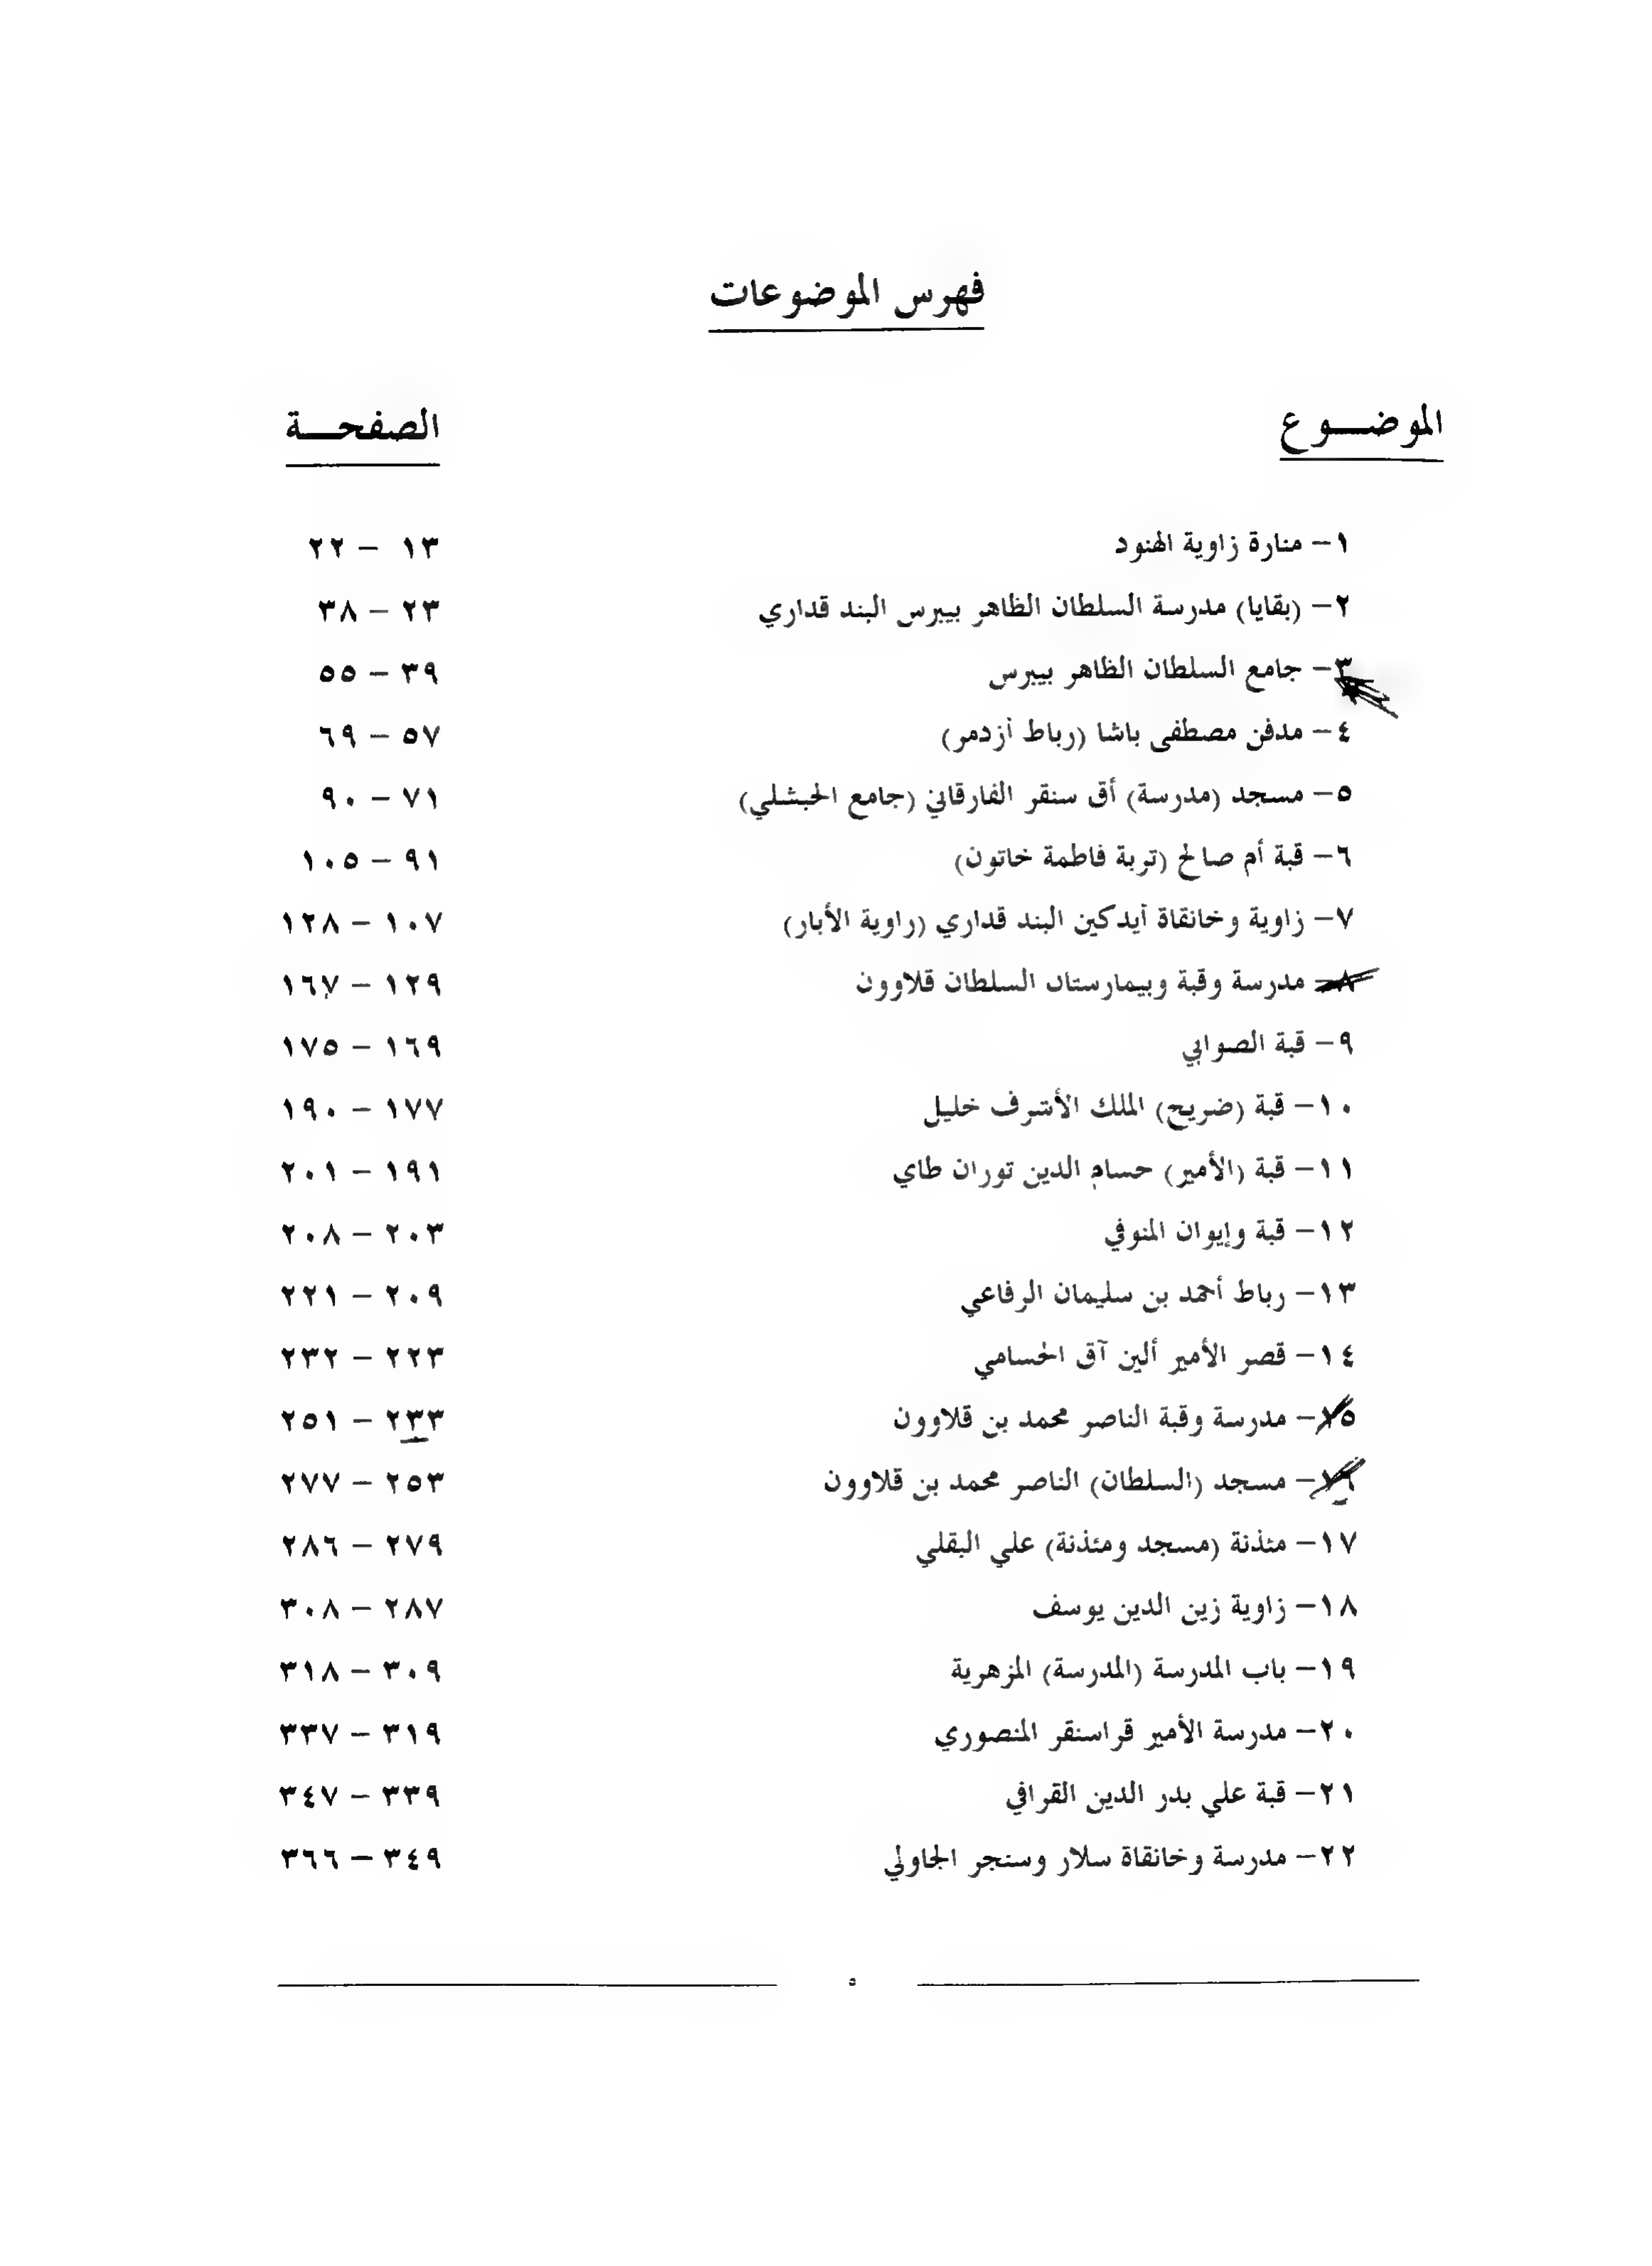 فهرس الموضوعات
الموضـــوع الصفحـــة
١- منارة زاوية الهنود ١٣ - ٢٢
٢- (بقايا) مدرسة السلطان الظاهر بيبرس البند قداري ٢٣ - ٣٨
٣- جامع السلطان الظاهر بيبرس ٣٩ - ٥٥
٤- مدفن مصطفى باشا (رباط أزدمر) ٥٧ - ٦٩
٥- مسجد (مدرسة) أق سنقر الفارقاني (جامع الحبشلي) ٧١ - ٩٠
٦- قبة أم صالح (تربة فاطمة خاتون) ٩١ - ١٠٥
٧- زاوية وخانقاة أيدكين البند قداري (راوية الأبار) ١٠٧ - ١٢٨
٨- مدرسة وقبة وبيمارستان السلطان قلاوون ١٢٩ - ١٦٧
٩- قبة الصوابي ١٦٩ - ١٧٥
١٠- قبة (ضريح) الملك الأشرف خليل ١٧٧ - ١٩٠
١١- قبة (الأمير) حسام الدين توران طاي ١٩١ - ٢٠١
١٢- قبة وإيوان المنوفي ٢٠٣ - ٢٠٨
١٣- رباط أحمد بن سليمان الرفاعي ٢٠٩ - ٢٢١
١٤- قصر الأمير ألين آق الحسامي ٢٢٣ - ٢٣٢
١٥- مدرسة وقبة الناصر محمد بن قلاوون ٢٣٣ - ٢٥١
١٦- مسجد (السلطان) الناصر محمد بن قلاوون ٢٥٣ - ٢٧٧
١٧- مئذنة (مسجد ومئذنة) علي البقلي ٢٧٩ - ٢٨٦
١٨- زاوية زين الدين يوسف ٢٨٧ - ٣٠٨
١٩- باب المدرسة (المدرسة) المزهرية ٣٠٩ - ٣١٨
٢٠- مدرسة الأمير قراسنقر المنصوري ٣١٩ - ٣٣٧
٢١- قبة علي بدر الدين القرافي ٣٣٩ - ٣٤٧
٢٢- مدرسة وخانقاة سلار وسنجر الجاولي ٣٤٩ - ٣٦٦
٥